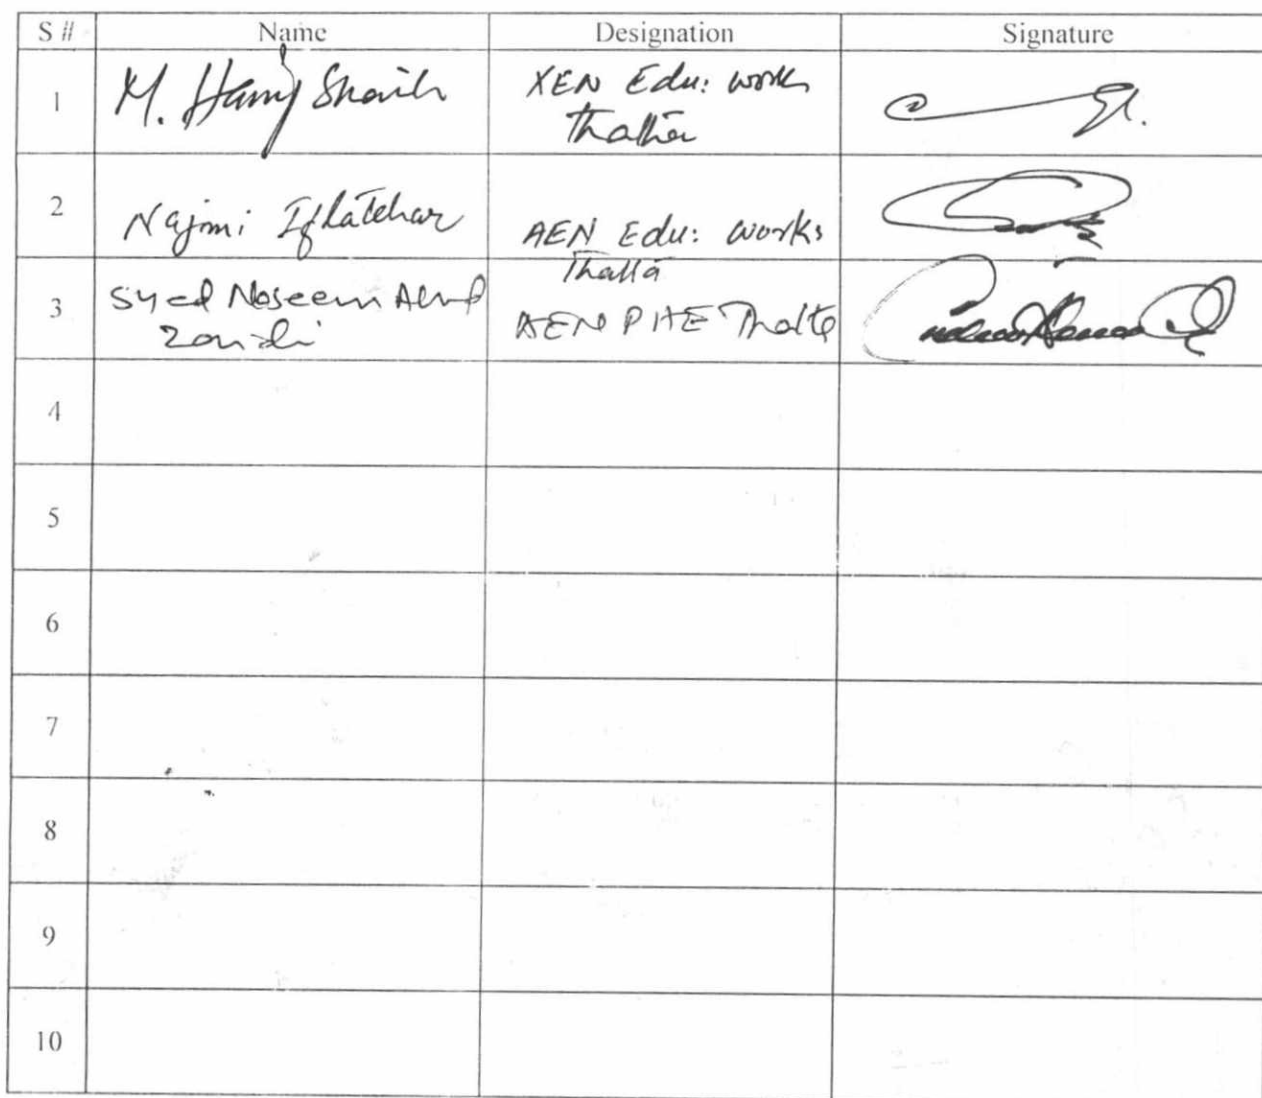 S # Name Designation Signature
1 M. Hanif Shaikh XEN Edu: works
Thatta
2 Najmi Iftatehar AEN Edu: works
Thatta
3 Syed Naseem Zaidi AEN PHE Thatta
4
5
6
7
8
9
10